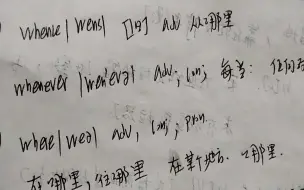 whence |wens| [旧] adv 从哪里
whenever |wen'evə| adv; conj; 每当; 任何
where |weə| adv, conj; pron.
在哪里, 往哪里 在某地方. 哪里.